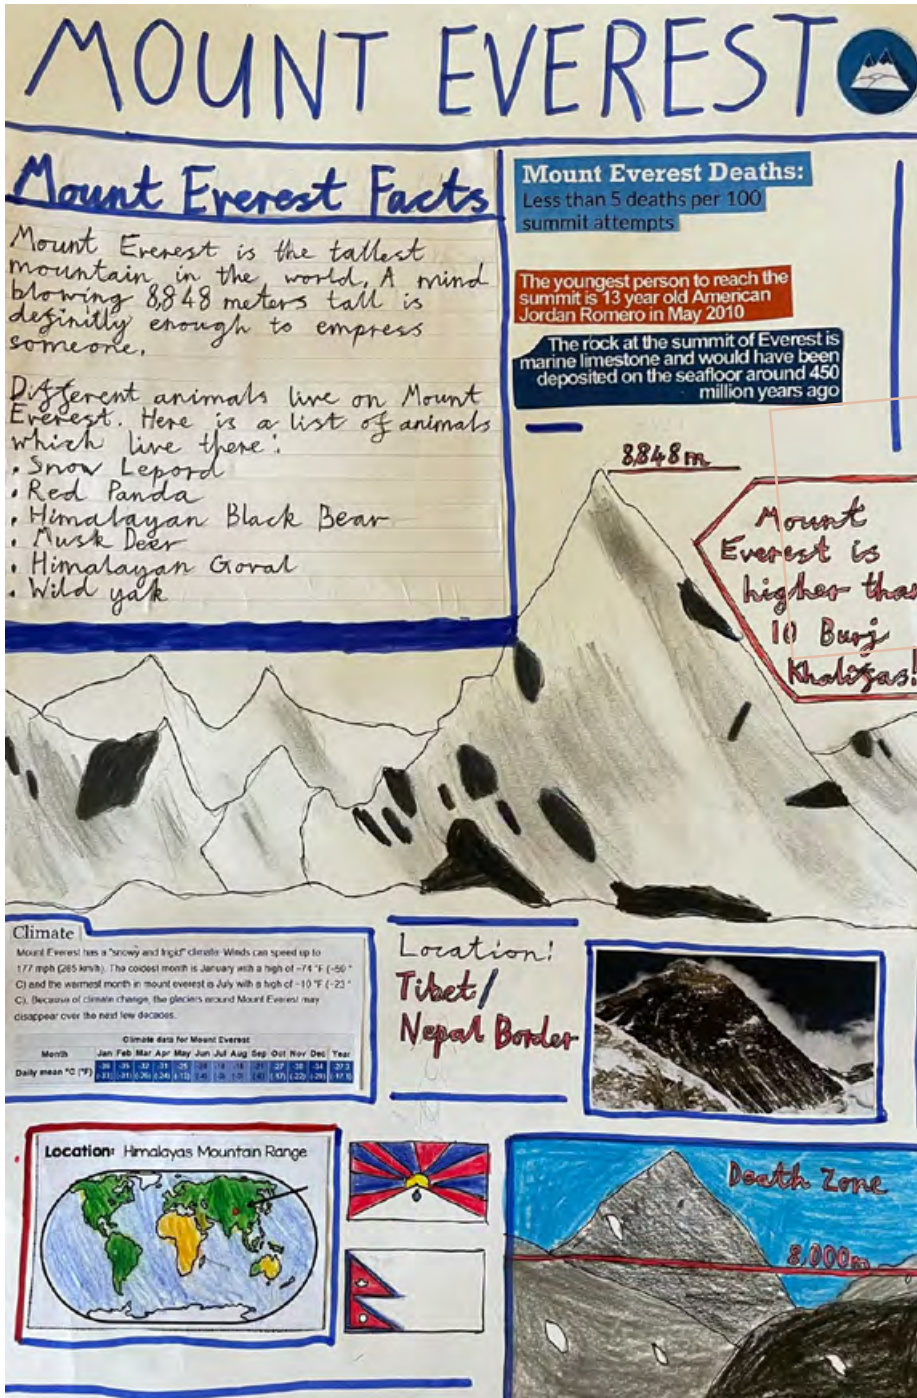 MOUNT EVEREST
Mount Everest Facts
Mount Everest is the tallest
mountain in the world. A mind
blowing 8,848 meters tall is
definitly enough to empress
someone.
Different animals live on Mount
Everest. Here is a list of animals
which live there:
• Snow Lepord
• Red Panda
• Himalayan Black Bear
• Musk Deer
• Himalayan Goral
• Wild yak
Mount Everest Deaths:
Less than 5 deaths per 100
summit attempts
The youngest person to reach the
summit is 13 year old American
Jordan Romero in May 2010
The rock at the summit of Everest is
marine limestone and would have been
deposited on the seafloor around 450
million years ago
8,848m
Mount
Everest is
higher than
10 Burj
Khalifas!
Climate
Mount Everest has a "snowy and frigid" climate. Winds can speed up to
177 mph (285 km/h). The coldest month is January with a high of -74 °F (-59 °
C) and the warmest month in mount everest is July with a high of -10 °F (-23 °
C). Because of climate change, the glaciers around Mount Everest may
disappear over the next few decades.
Climate data for Mount Everest
Month Jan Feb Mar Apr May Jun Jul Aug Sep Oct Nov Dec Year
Daily mean °C (°F)
Location:
Tibet/
Nepal Border
Location: Himalayas Mountain Range
Death Zone
8,000m